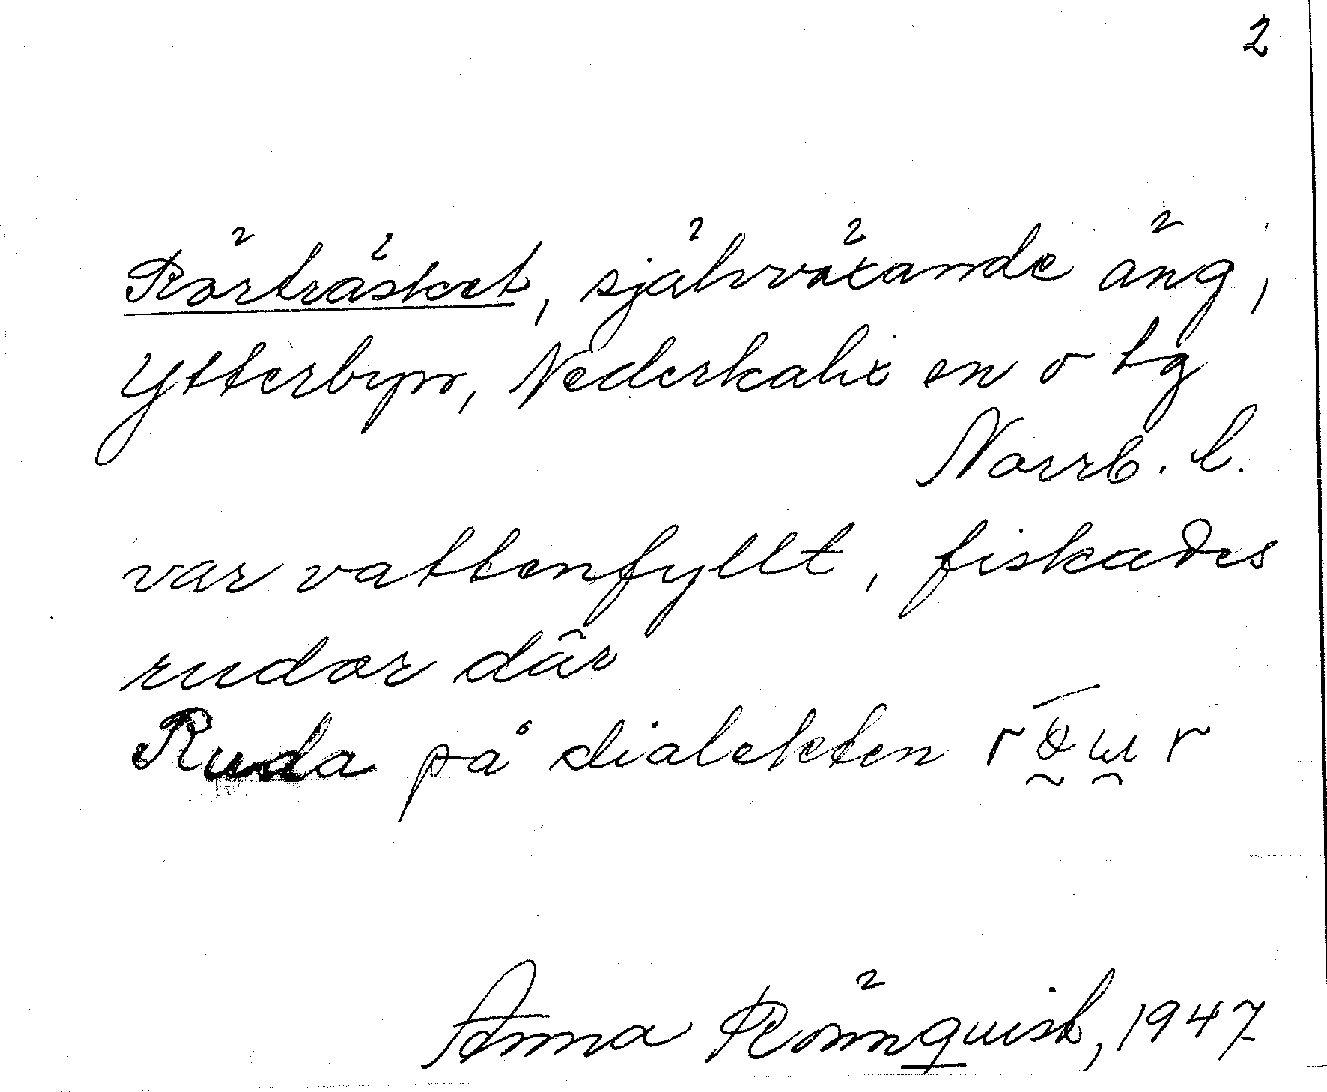 2
Rörträsket, självväxande äng,
Ytterbyn, Nederkalix sn o tg
Norrb. l.
var vattenfyllt, fiskades
rudor där
Ruda på dialekten
Anna Rönnquist, 1947